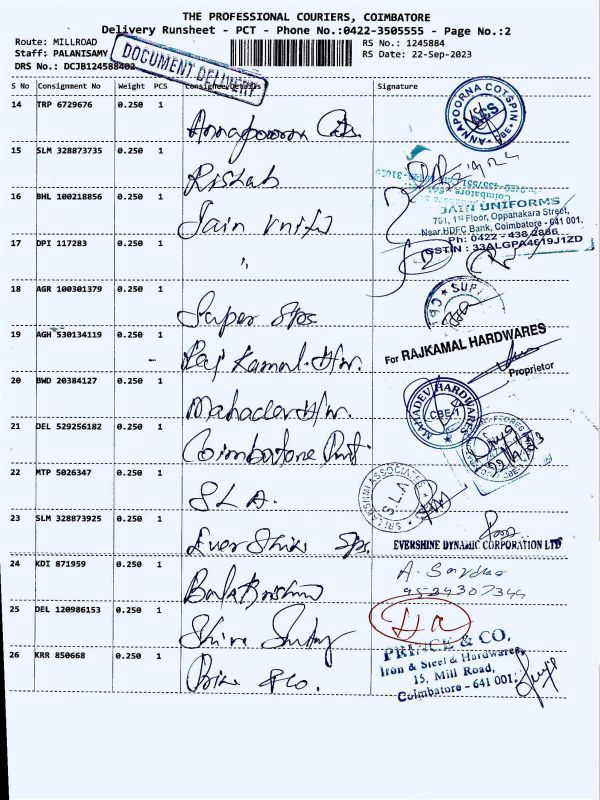 THE PROFESSIONAL COURIERS, COIMBATORE
Delivery Runsheet - PCT - Phone No.:0422-3505555 - Page No.:2
Route: MILLROAD
RS No.: 1245884
Staff: PALANISAMY
RS Date: 22-Sep-2023
DRS No.: DCJB124588402
DOCUMENT DELIVERY
S No Consignment No Weight PCS Consignee Details Signature
14 TRP 6729676 0.250 1
Annapoorna Cots.
ANNAPOORNA COTSPIN
ACS
15 SLM 328873735 0.250 1
Rishab
16 BHL 100218856 0.250 1
Jain Unifo
JAIN UNIFORMS
751, 1st Floor, Oppanakara Street,
Near.HDFC Bank, Coimbatore - 641 001.
Ph: 0422 - 438 2886
GSTIN : 33ALGPA4619J1ZD
17 DPI 117283 0.250 1
"
18 AGR 100301379 0.250 1
Super Sps
19 AGH 530134119 0.250 1
Raj Kamal H/w.
For RAJKAMAL HARDWARES
Proprietor
20 BWD 20384127 0.250 1
Mahadev H/w.
MAHADEV HARDWARES
CBE-1
21 DEL 529256182 0.250 1
Coimbatore
22 MTP 5026347 0.250 1
SLA.
SRI LAKSHMI ASSOCIATES
S.L.A
23 SLM 328873925 0.250 1
Ever Shine Sps.
EVERSHINE DYNAMIC CORPORATION LTD
24 KDI 871959 0.250 1
Bala
25 DEL 120986153 0.250 1
Shiva
26 KRR 850668 0.250 1
Price & Co.
PRINCE & CO.
Iron & Steel & Hardwares,
15, Mill Road,
Coimbatore - 641 001.